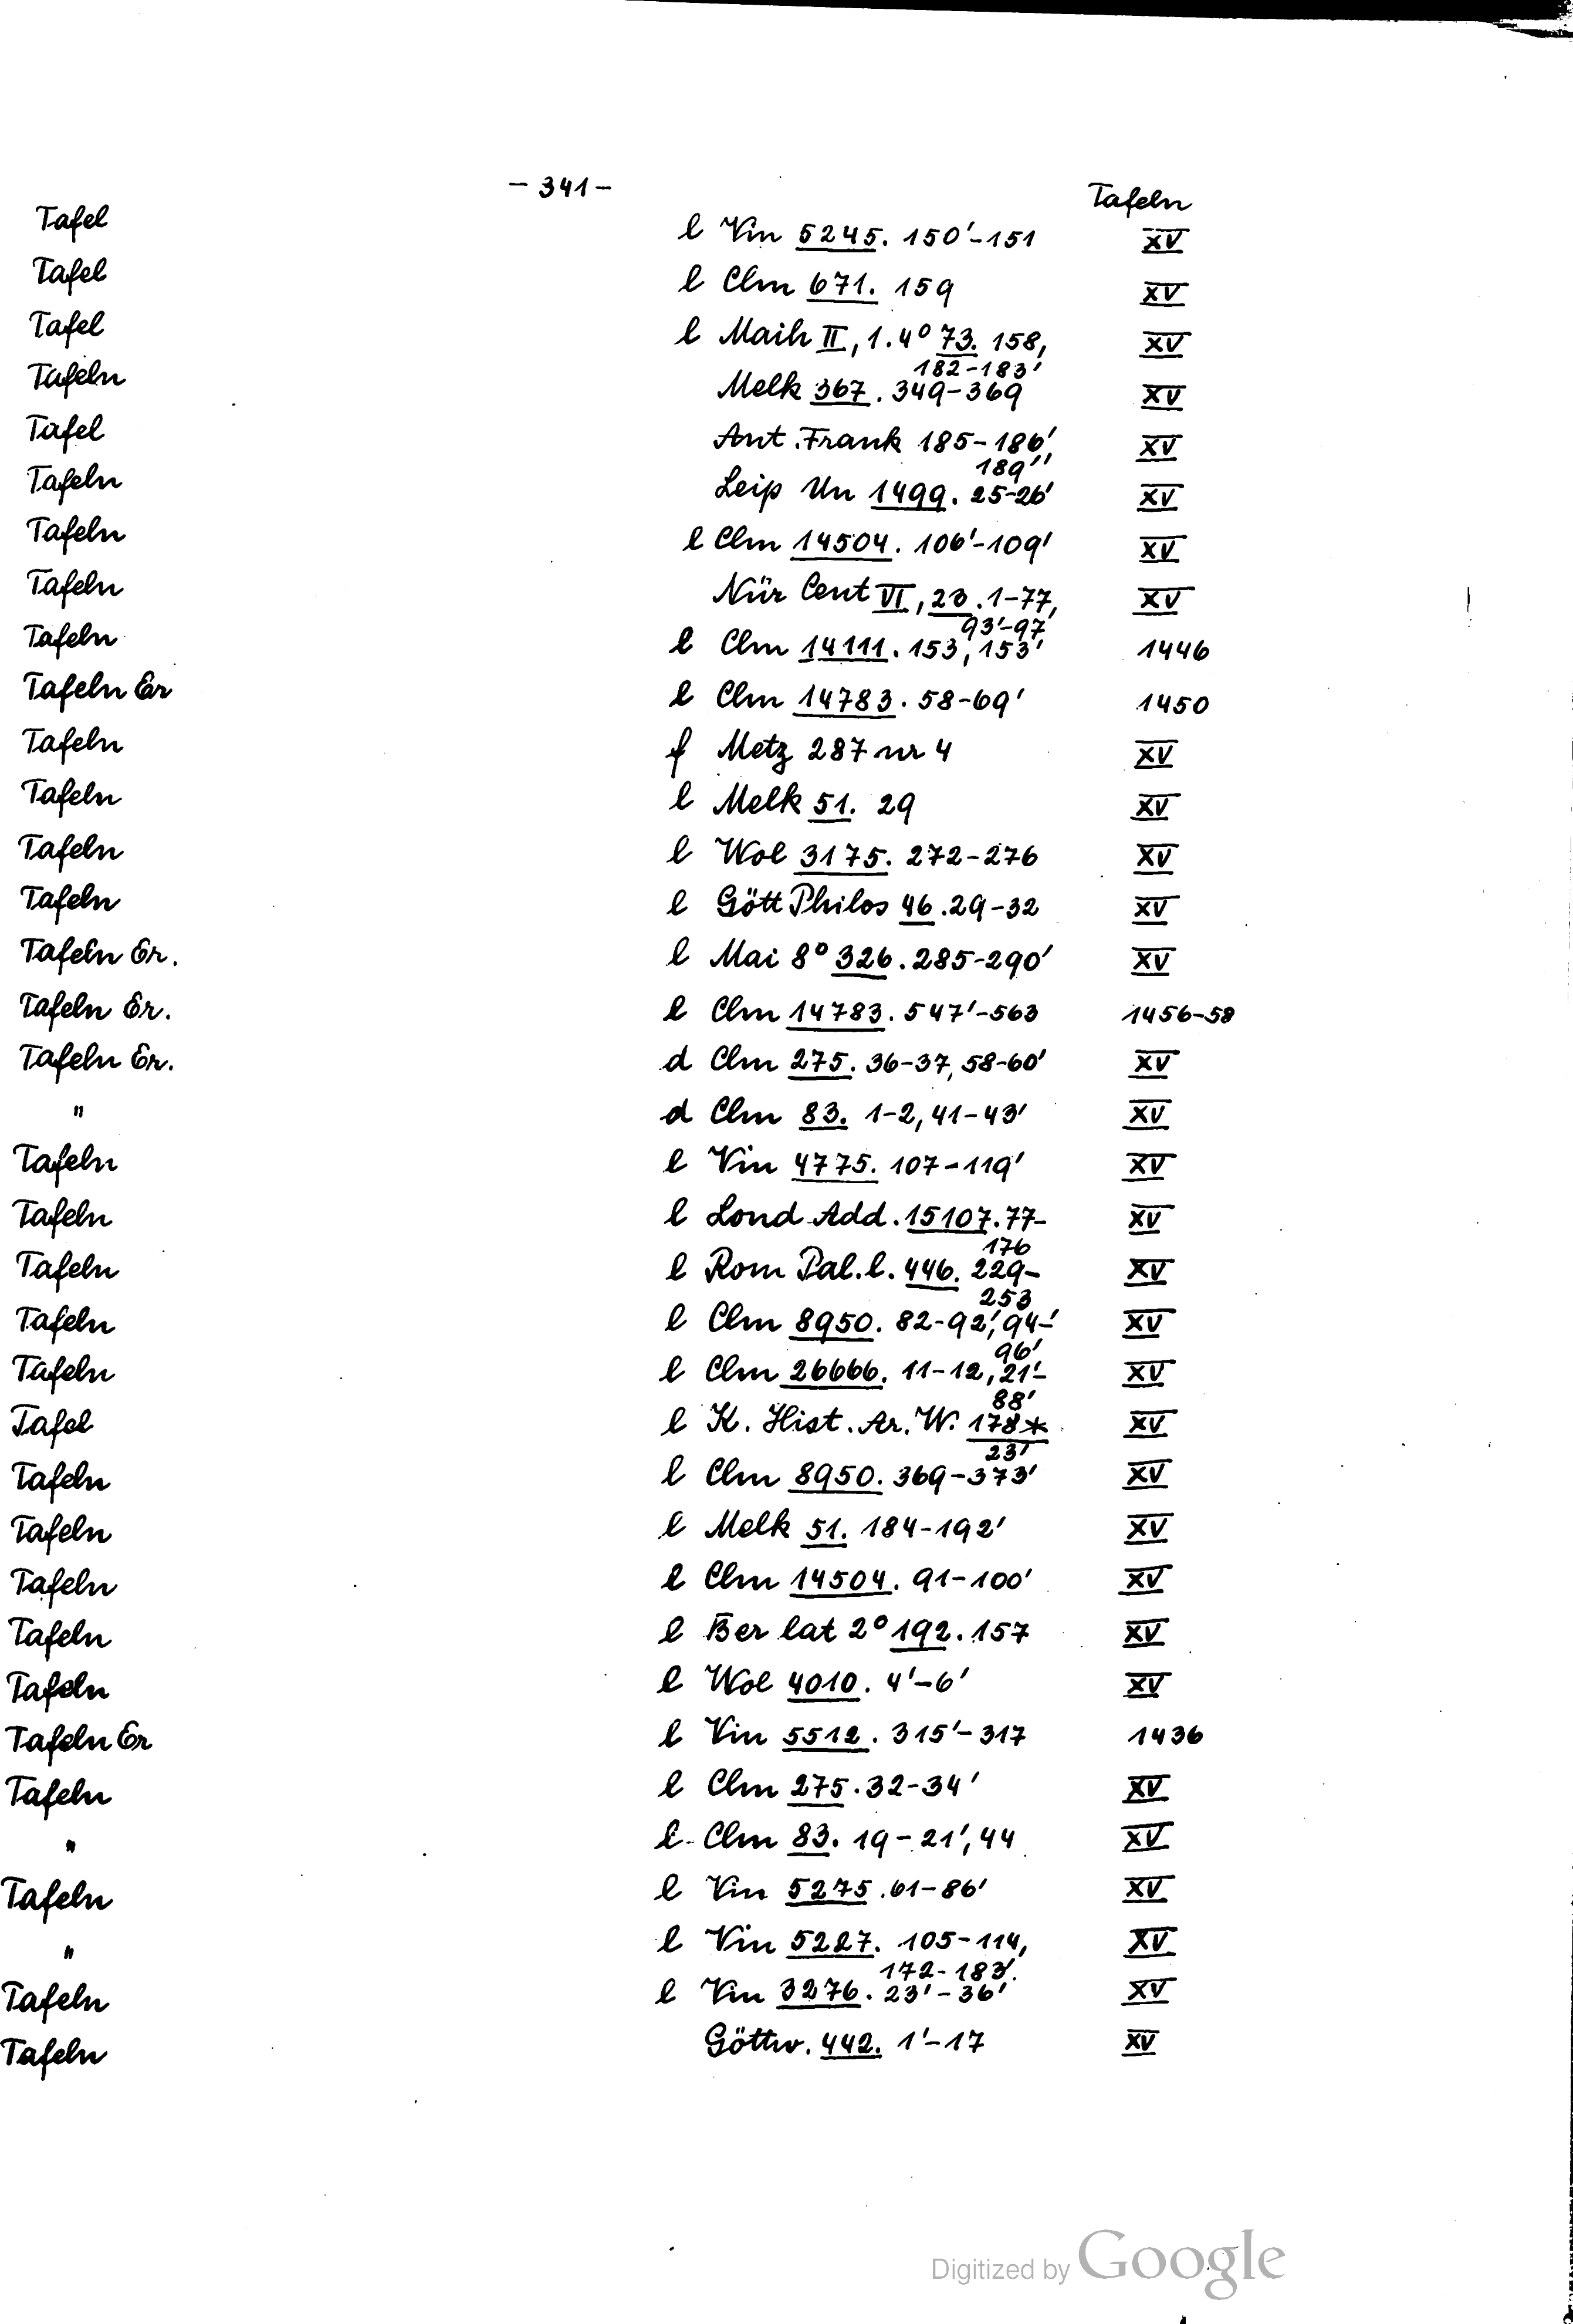 - 341 -
Tafeln
Tafel l Vin 5245. 150'-151 XV
Tafel l Clm 671. 159 XV
Tafel l Maih II, 1. 4° 73. 158, XV
182-183'
Tafeln Melk 367. 349-369 XV
Tafel Ant. Frank 185-186', XV
189''
Tafeln Leip Un 1499. 25-26' XV
Tafeln l Clm 14504. 106'-109' XV
Tafeln Nür Cent VI, 23. 1-77, XV
93'-97
Tafeln l Clm 14111. 153, 153' 1446
Tafeln Er l Clm 14783. 58-69' 1450
Tafeln f Metz 287 nr 4 XV
Tafeln l Melk 51. 29 XV
Tafeln l Wol 3175. 272-276 XV
Tafeln l Gött Philos 46. 29-32 XV
Tafeln Er. l Mai 8° 326. 285-290' XV
Tafeln Er. l Clm 14783. 547'-563 1456-58
Tafeln Er. d Clm 275. 36-37, 58-60' XV
" d Clm 83. 1-2, 41-43' XV
Tafeln l Vin 4775. 107-119' XV
Tafeln l Lond Add. 15107. 77- XV
176
Tafeln l Rom Pal. l. 446. 229- XV
253
Tafeln l Clm 8950. 82-92', 94-' XV
96'
Tafeln l Clm 26666. 11-12, 21'- XV
88'
Tafel l K. Hist. Ar. W. 178* XV
23'
Tafeln l Clm 8950. 369-373' XV
Tafeln l Melk 51. 184-192' XV
Tafeln l Clm 14504. 91-100' XV
Tafeln l Ber lat 2° 192. 157 XV
Tafeln l Wol 4010. 4'-6' XV
Tafeln Er l Vin 5512. 315'-317 1436
Tafeln l Clm 275. 32-34' XV
" l Clm 83. 19-21', 44 XV
Tafeln l Vin 5275. 61-86' XV
" l Vin 5227. 105-114, XV
172-183'.
Tafeln l Vin 3276. 23'-36' XV
Tafeln Göttw. 442. 1'-17 XV
Digitized by Google